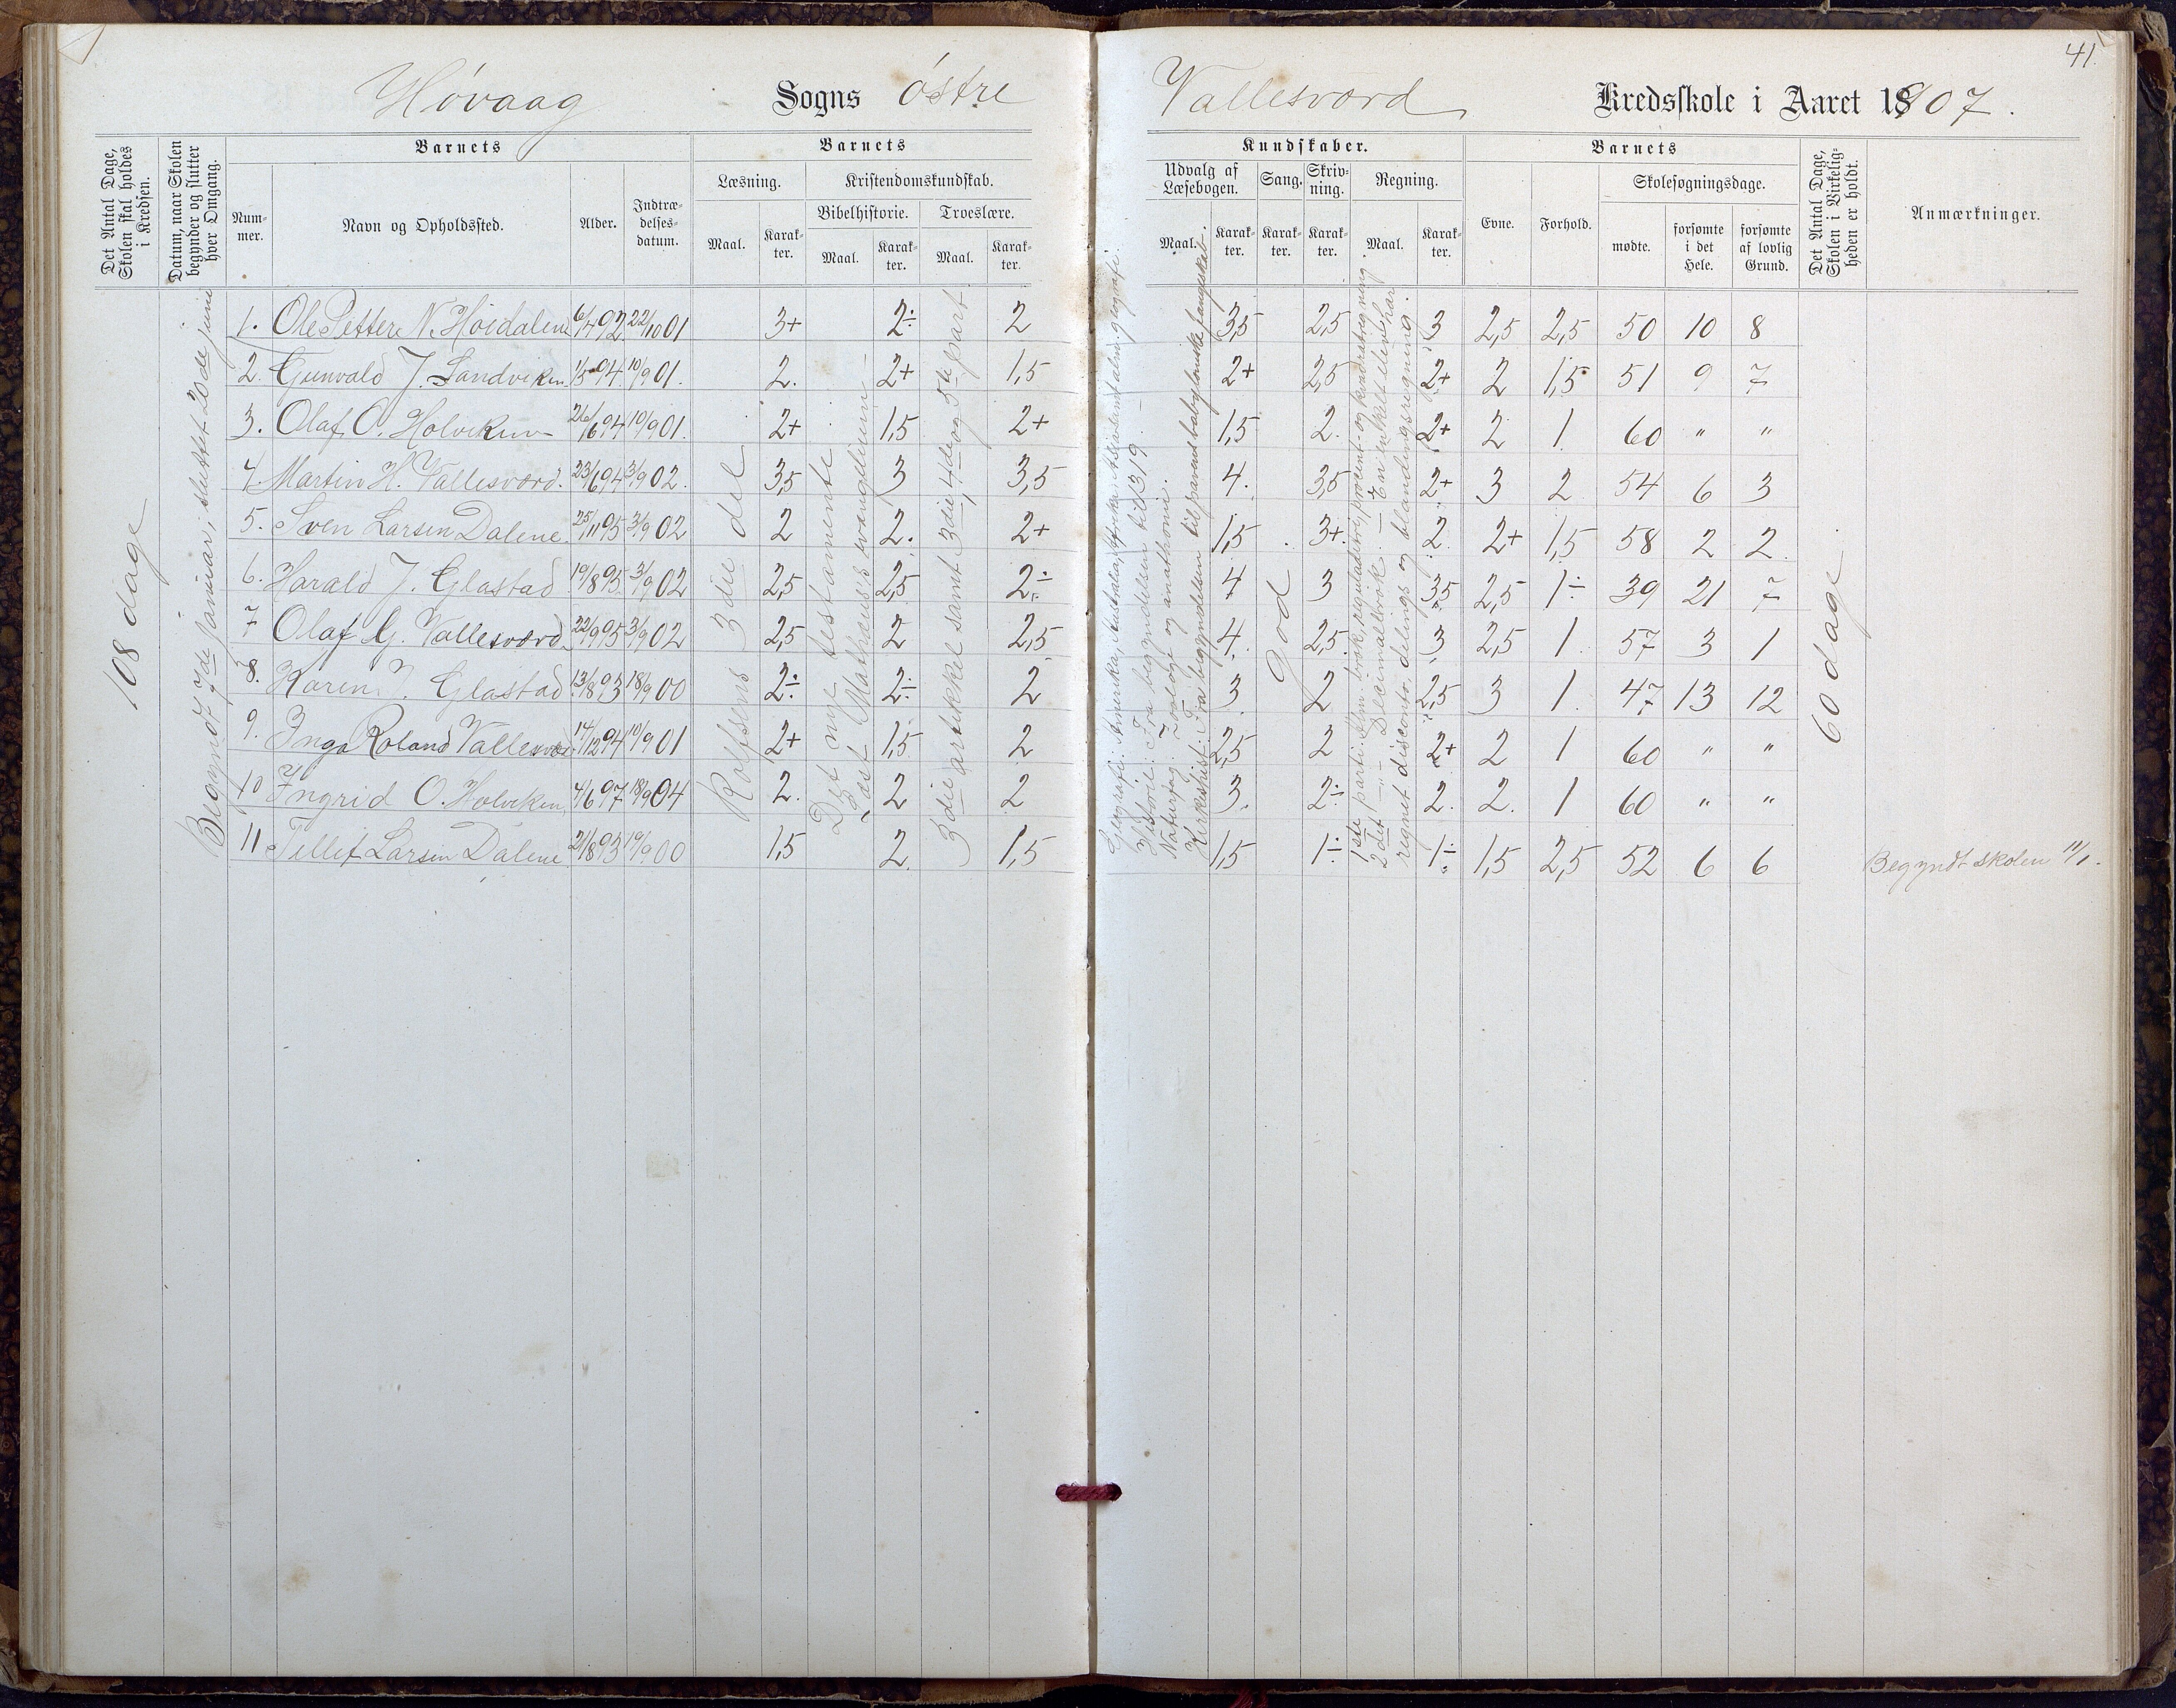 41.
Høvaag Sogns østre Vallesværd Kredsskole i Aaret 1907.
Det Antal Dage, Skolen skal holdes i Kredsen.
Datum, naar Skolen begynder og slutter hver Omgang.
Barnets
Nummer.
Navn og Opholdssted.
Alder.
Indtrædelsesdatum.
Barnets
Læsning.
Maal.
Karakter.
Kristendomskundskab.
Bibelhistorie.
Maal.
Karakter.
Troeslære.
Maal.
Karakter.
Kundskaber.
Udvalg af Læsebogen.
Maal.
Karakter.
Sang.
Karakter.
Skrivning.
Karakter.
Regning.
Maal.
Karakter.
Barnets
Evne.
Forhold.
Skolesøgningsdage.
mødte.
forsømte i det Hele.
forsømte af lovlig Grund.
Det Antal Dage, Skolen i Virkeligheden er holdt.
Anmærkninger.
108 dage
Begyndt 7de januar, sluttet 20de juni
Rolfsens 3die del
Det nye testamente
Læst Mathæus's evangelium
3die artikkel samt 3die, 4de og 5te part
Historie: Fra begyndelsen til 1319.
Naturfag: Zoologi og anathomi.
Kirkehist: Fra begyndelsen til pavens babylonske fangeskab.
god
2det " Decimalbrøk. En enkelt elev har
regnet disconto, delings og blandingsregning.
60 dage
1. Ole Petter N. Høidalen 6/4 92 22/10 01 3+ 2÷ 2 3,5 2,5 3 2,5 2,5 50 10 8
2. Gunvald J. Sandviken 1/5 94 10/9 01. 2. 2+ 1,5 2+ 2,5 2+ 2 1,5 51 9 7
3. Olaf O. Holviken 26/6 94 10/9 01. 2+ 1,5 2+ 1,5 2. 2+ 2 1 60 " "
4. Martin H. Vallesværd. 23/6 94 3/9 02. 3,5 3 3,5 4. 3,5 2+ 3 2 54 6 3
5. Sven Larsen Dalene 25/11 95 3/9 02 2 2. 2+ 1,5 3+ 2. 2+ 1,5 58 2 2
6. Harald J. Glastad 19/8 95 3/9 02 2,5 2,5 2÷ 4 3 3,5 2,5 1÷ 39 21 7
7 Olaf G. Vallesværd 22/9 95 3/9 02 2,5 2 2,5 4. 2,5. 3 2,5 1. 57 3 1
8. Karen J. Glastad 13/8 93 18/9 00 2÷ 2÷ 2 3 2 2,5 3 1. 47 13 12
9. Inga Roland Vallesvær 14/12 94 10/9 01 2+ 1,5 2 2,5 2 2+ 2 1 60 " "
10 Ingrid O. Holviken 4/6 97 18/9 04 2. 2 2 3. 2÷ 2. 2. 1 60 " "
11 Tellef Larsen Dalene 21/8 93 19/9 00 1,5 2 1,5 1,5 1÷ 1÷ 1,5 2,5 52 6 6 Begyndt skolen 11/1.